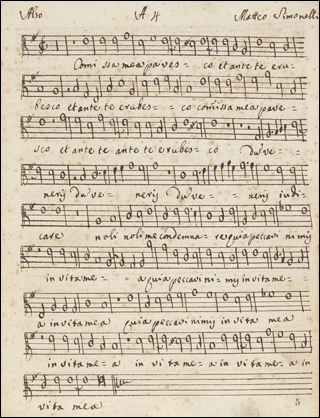 Alto A 4 Matteo Simonelli
Comissa mea paves = co et ante te eru =
besco et ante te erubes = = co comissa mea pave =
sco et ante te ante te erubesco = co du ve =
nerij du ve = nerij du ve = nerij iudi =
care noli noli me condemna = re quia peccavi nimij
in vita me = a quia peccavi nimij in vita me =
a in vita mea quia peccavi nimij in vita mea
in vita me = a in vi ta me = a in vita me = a in
vita mea
5